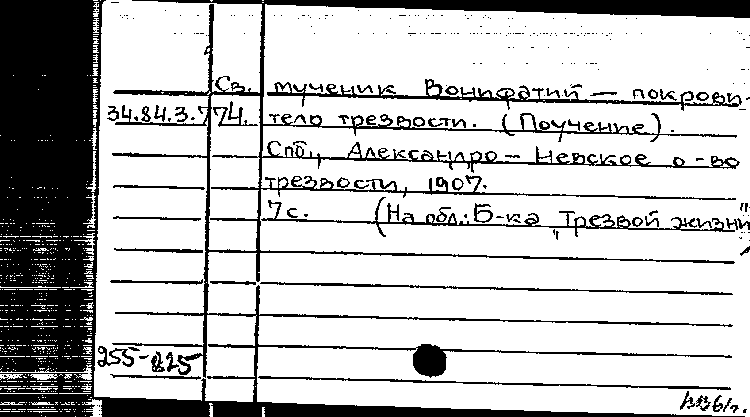 Св. мученик Вонифатий — покрови-
34.84.3.774. тель трезвости. (Поучение).
Спб., Александро-Невское о-во
трезвости, 1907.
7 с. (На обл.: Б-ка "Трезвой жизни"
255-825